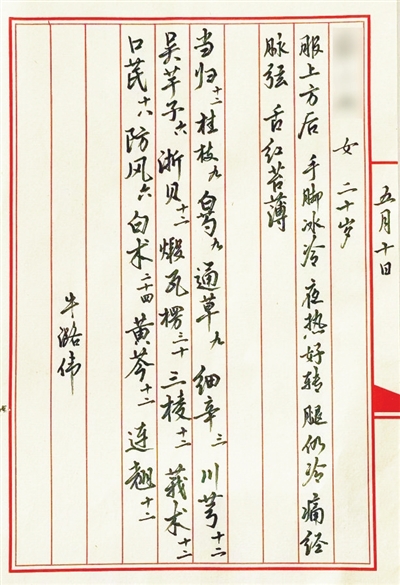 五月十日
女 二十岁
服上方后 手脚冰冷 夜热好转 腿仍冷 痛经
脉弦 舌红苔薄
当归十二 桂枝九 白芍九 通草九 细辛三 川芎十二
吴芋子六 浙贝十二 煅瓦楞三十 三棱十二 莪术十二
口芪十八 防风六 白术二十四 黄芩十二 连翘十二
牛潞伟